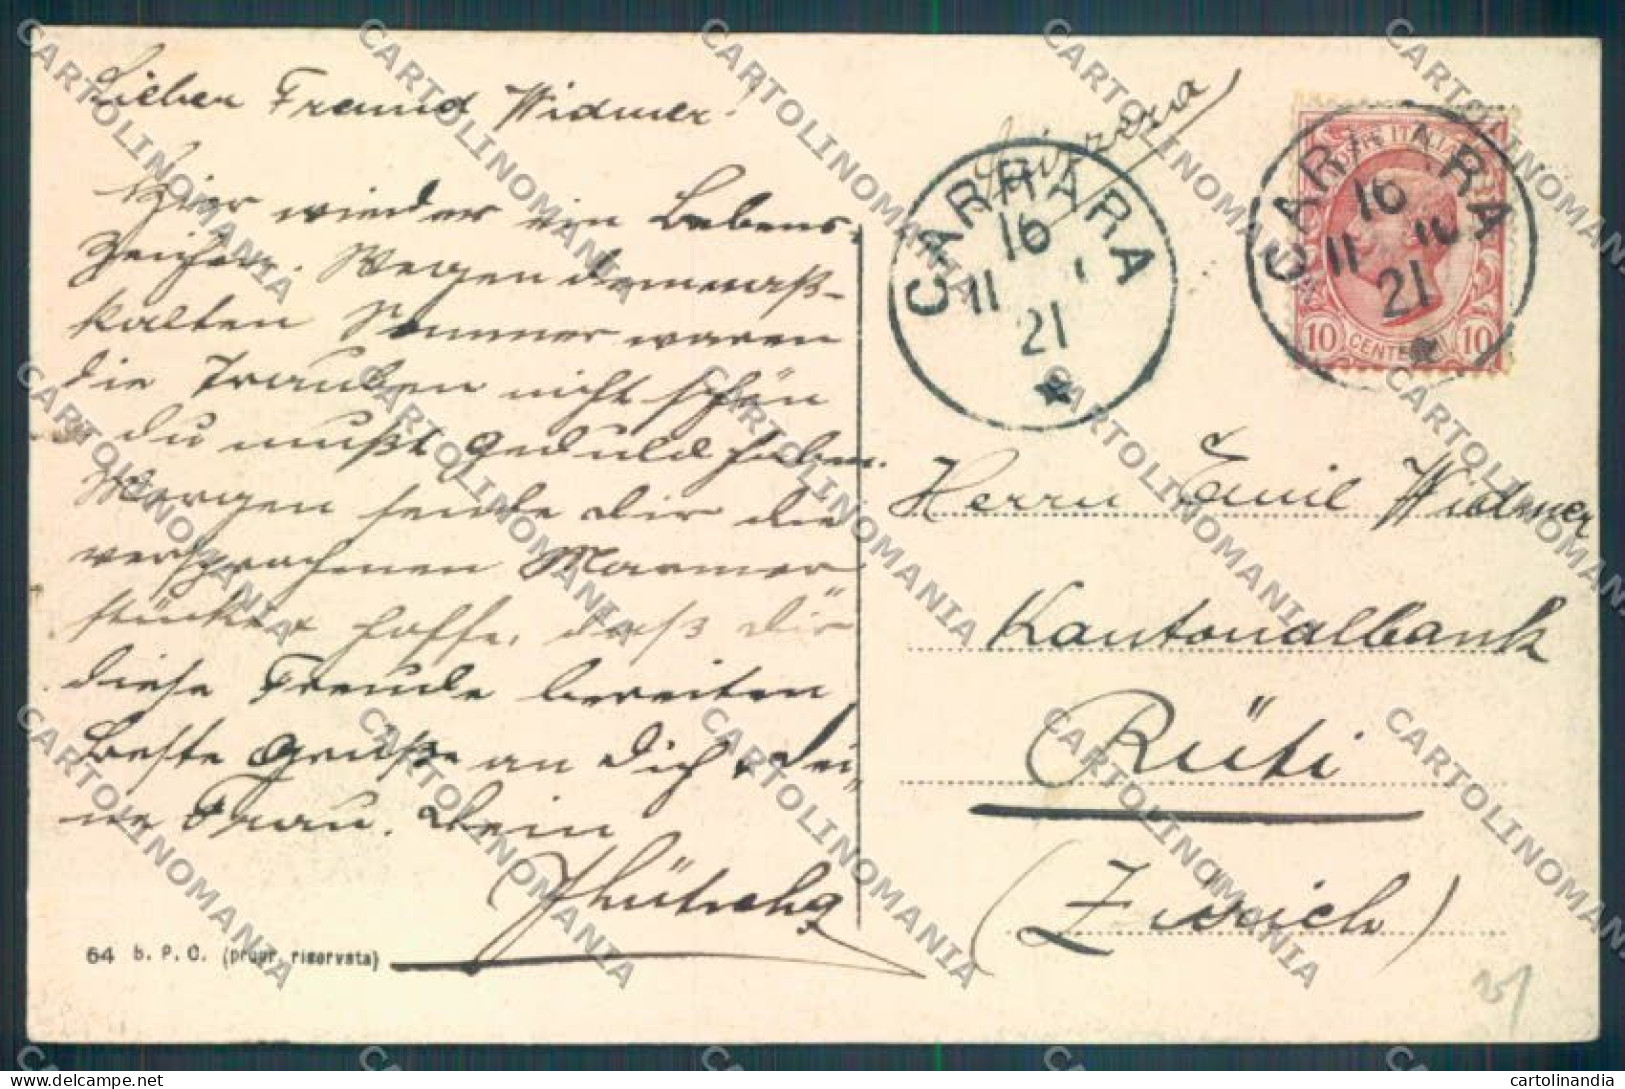 Lieber Freund Widmer!
Hier wieder ein Lebens-
zeichen. Wegen dem naß-
kalten Sommer waren
die Trauben nicht schön
du mußt Geduld haben.
Morgen sende dir die
versprochenen Marmor
stücke & hoffe, daß dir
diese Freude bereiten
Beste Grüße an Dich & Dei-
ne Frau. Dein
64 b. P. C. (propr. riservata)
Svizzera
CARRARA
16
11
21
CARRARA
16
11 10
21
POSTE ITALIANE
10 CENTESIMI 10
Herrn Emil Widmer
Kantonalbank
Rüti
(Zürich)
CARTOLINOMANIA
cartolinandia
delcampe.net